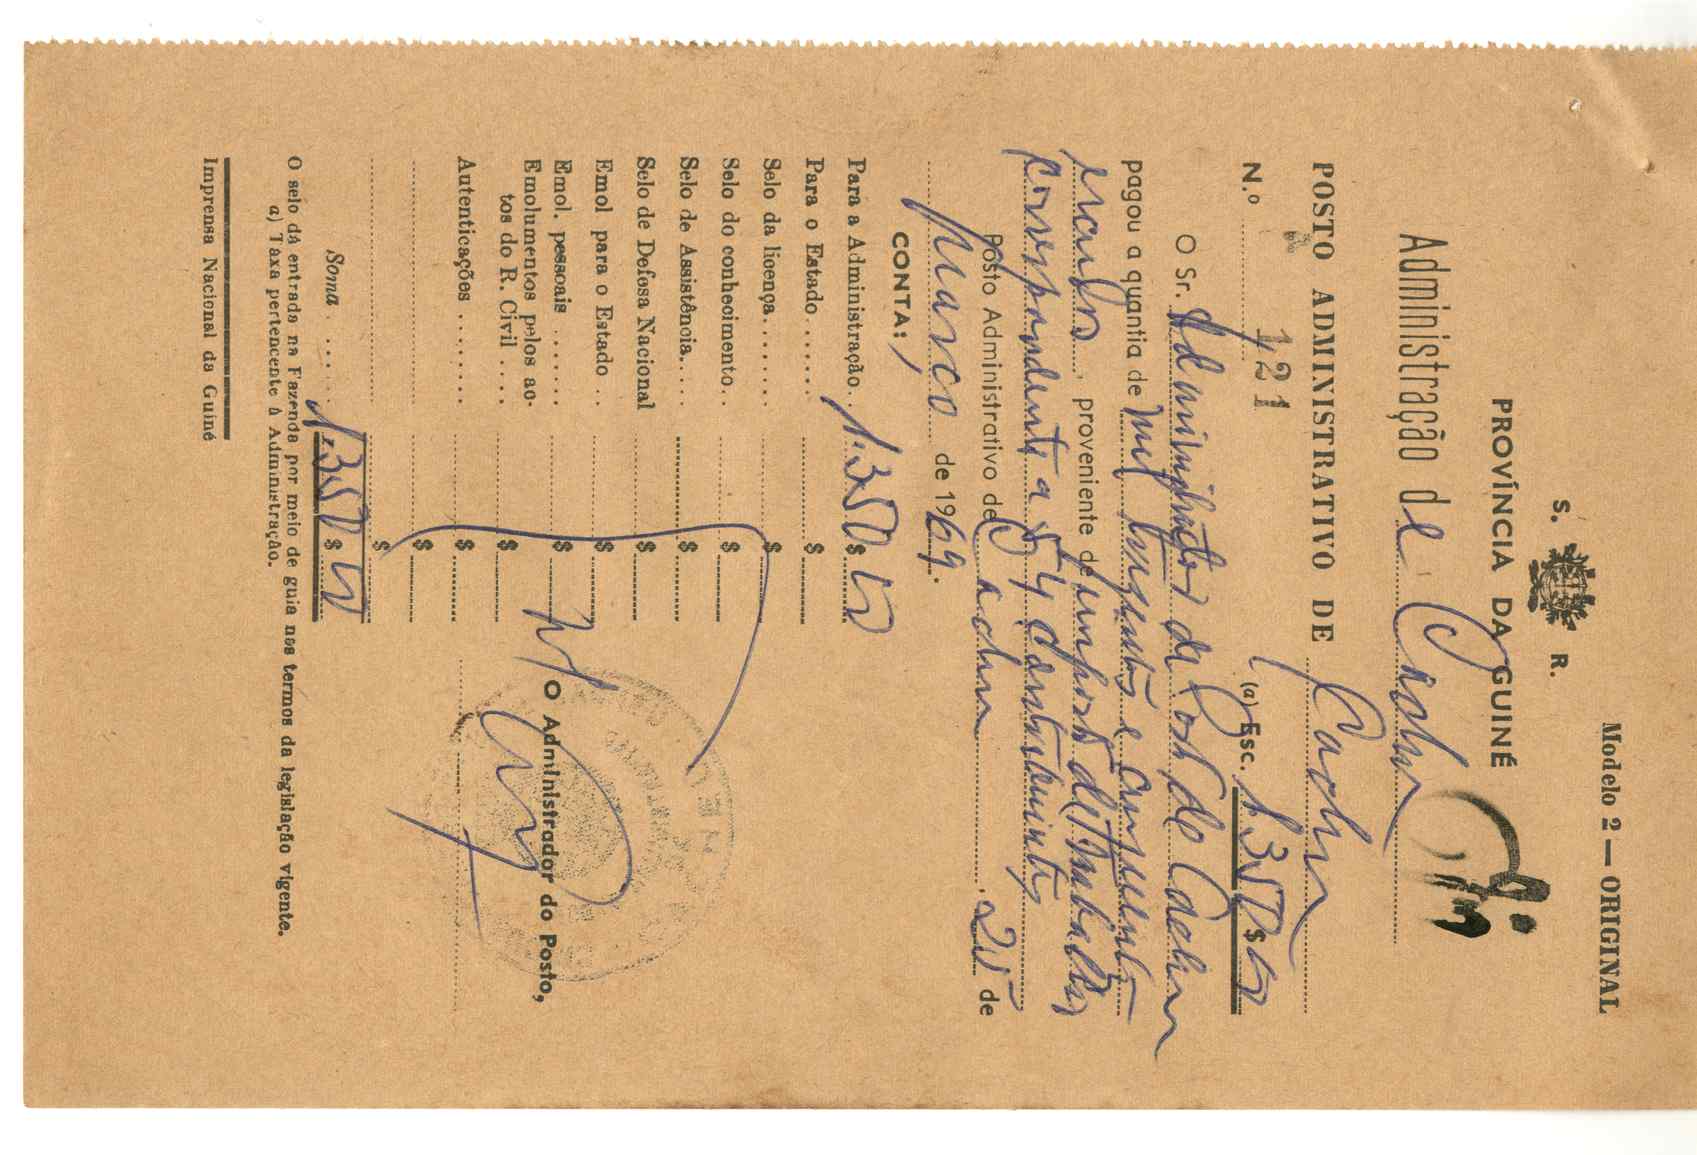 Modelo 2 — ORIGINAL
S. R.
PROVÍNCIA DA GUINÉ
Administração de Cacheu
POSTO ADMINISTRATIVO DE Cacheu
N.o 121 (a) Esc. 1.350$00
O Sr. Administrador do Posto de Cacheu
pagou a quantia de mil trezentos e cincuenta
escudos, proveniente de impostos de trabalho
correspondente a 54 contribuintes
Posto Administrativo de Cacheu, 25 de
Março de 1969.
CONTA:
Para a Administração .. 1.350$00
Para o Estado ....... $
Selo da licença ...... $
Selo do conhecimento .. $
Selo de Assistência .... $
Selo de Defesa Nacional $
Emol para o Estado .. $
Emol. pessoais ....... $
Emolumentos pelos ac-
tos do R. Civil .... $
Autenticações ....... $
$
$
Soma ..... 1.350$00
O Administrador do Posto,
O selo dá entrada na Fazenda por meio de guia nos termos da legislação vigente.
a) Taxa pertencente à Administração.
Imprensa Nacional da Guiné